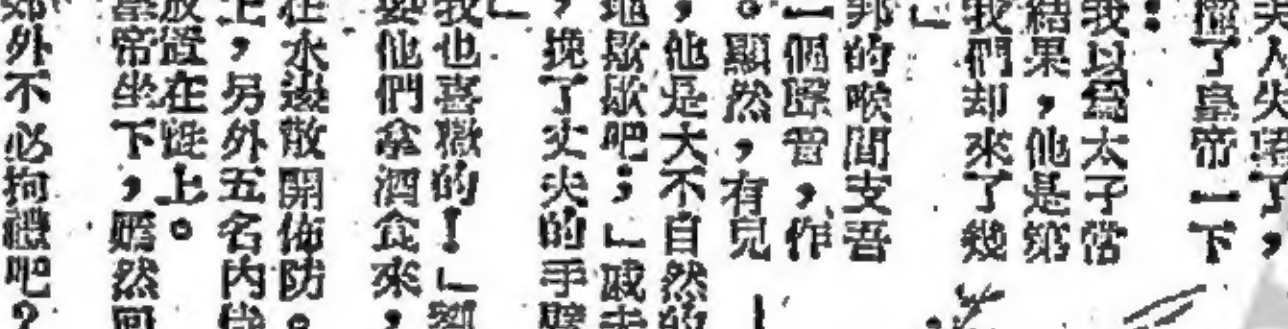 夫人失踪了，
檻了皇帝一下
：
我以爲太子常
結果，他是第
我們却來了幾
」
邦的喉間支吾
一個聲音，作
。顯然，有兒
，他是大不自然的
地歇歇吧；」戚夫
，挽了丈夫的手臂
」
我也喜歡的！」劉
要他們拿酒食來，
在水邊散開佈防。
上，另外五名內侍
放置在毡上。
皇帝坐下，驀然回
郊外不必拘禮吧？